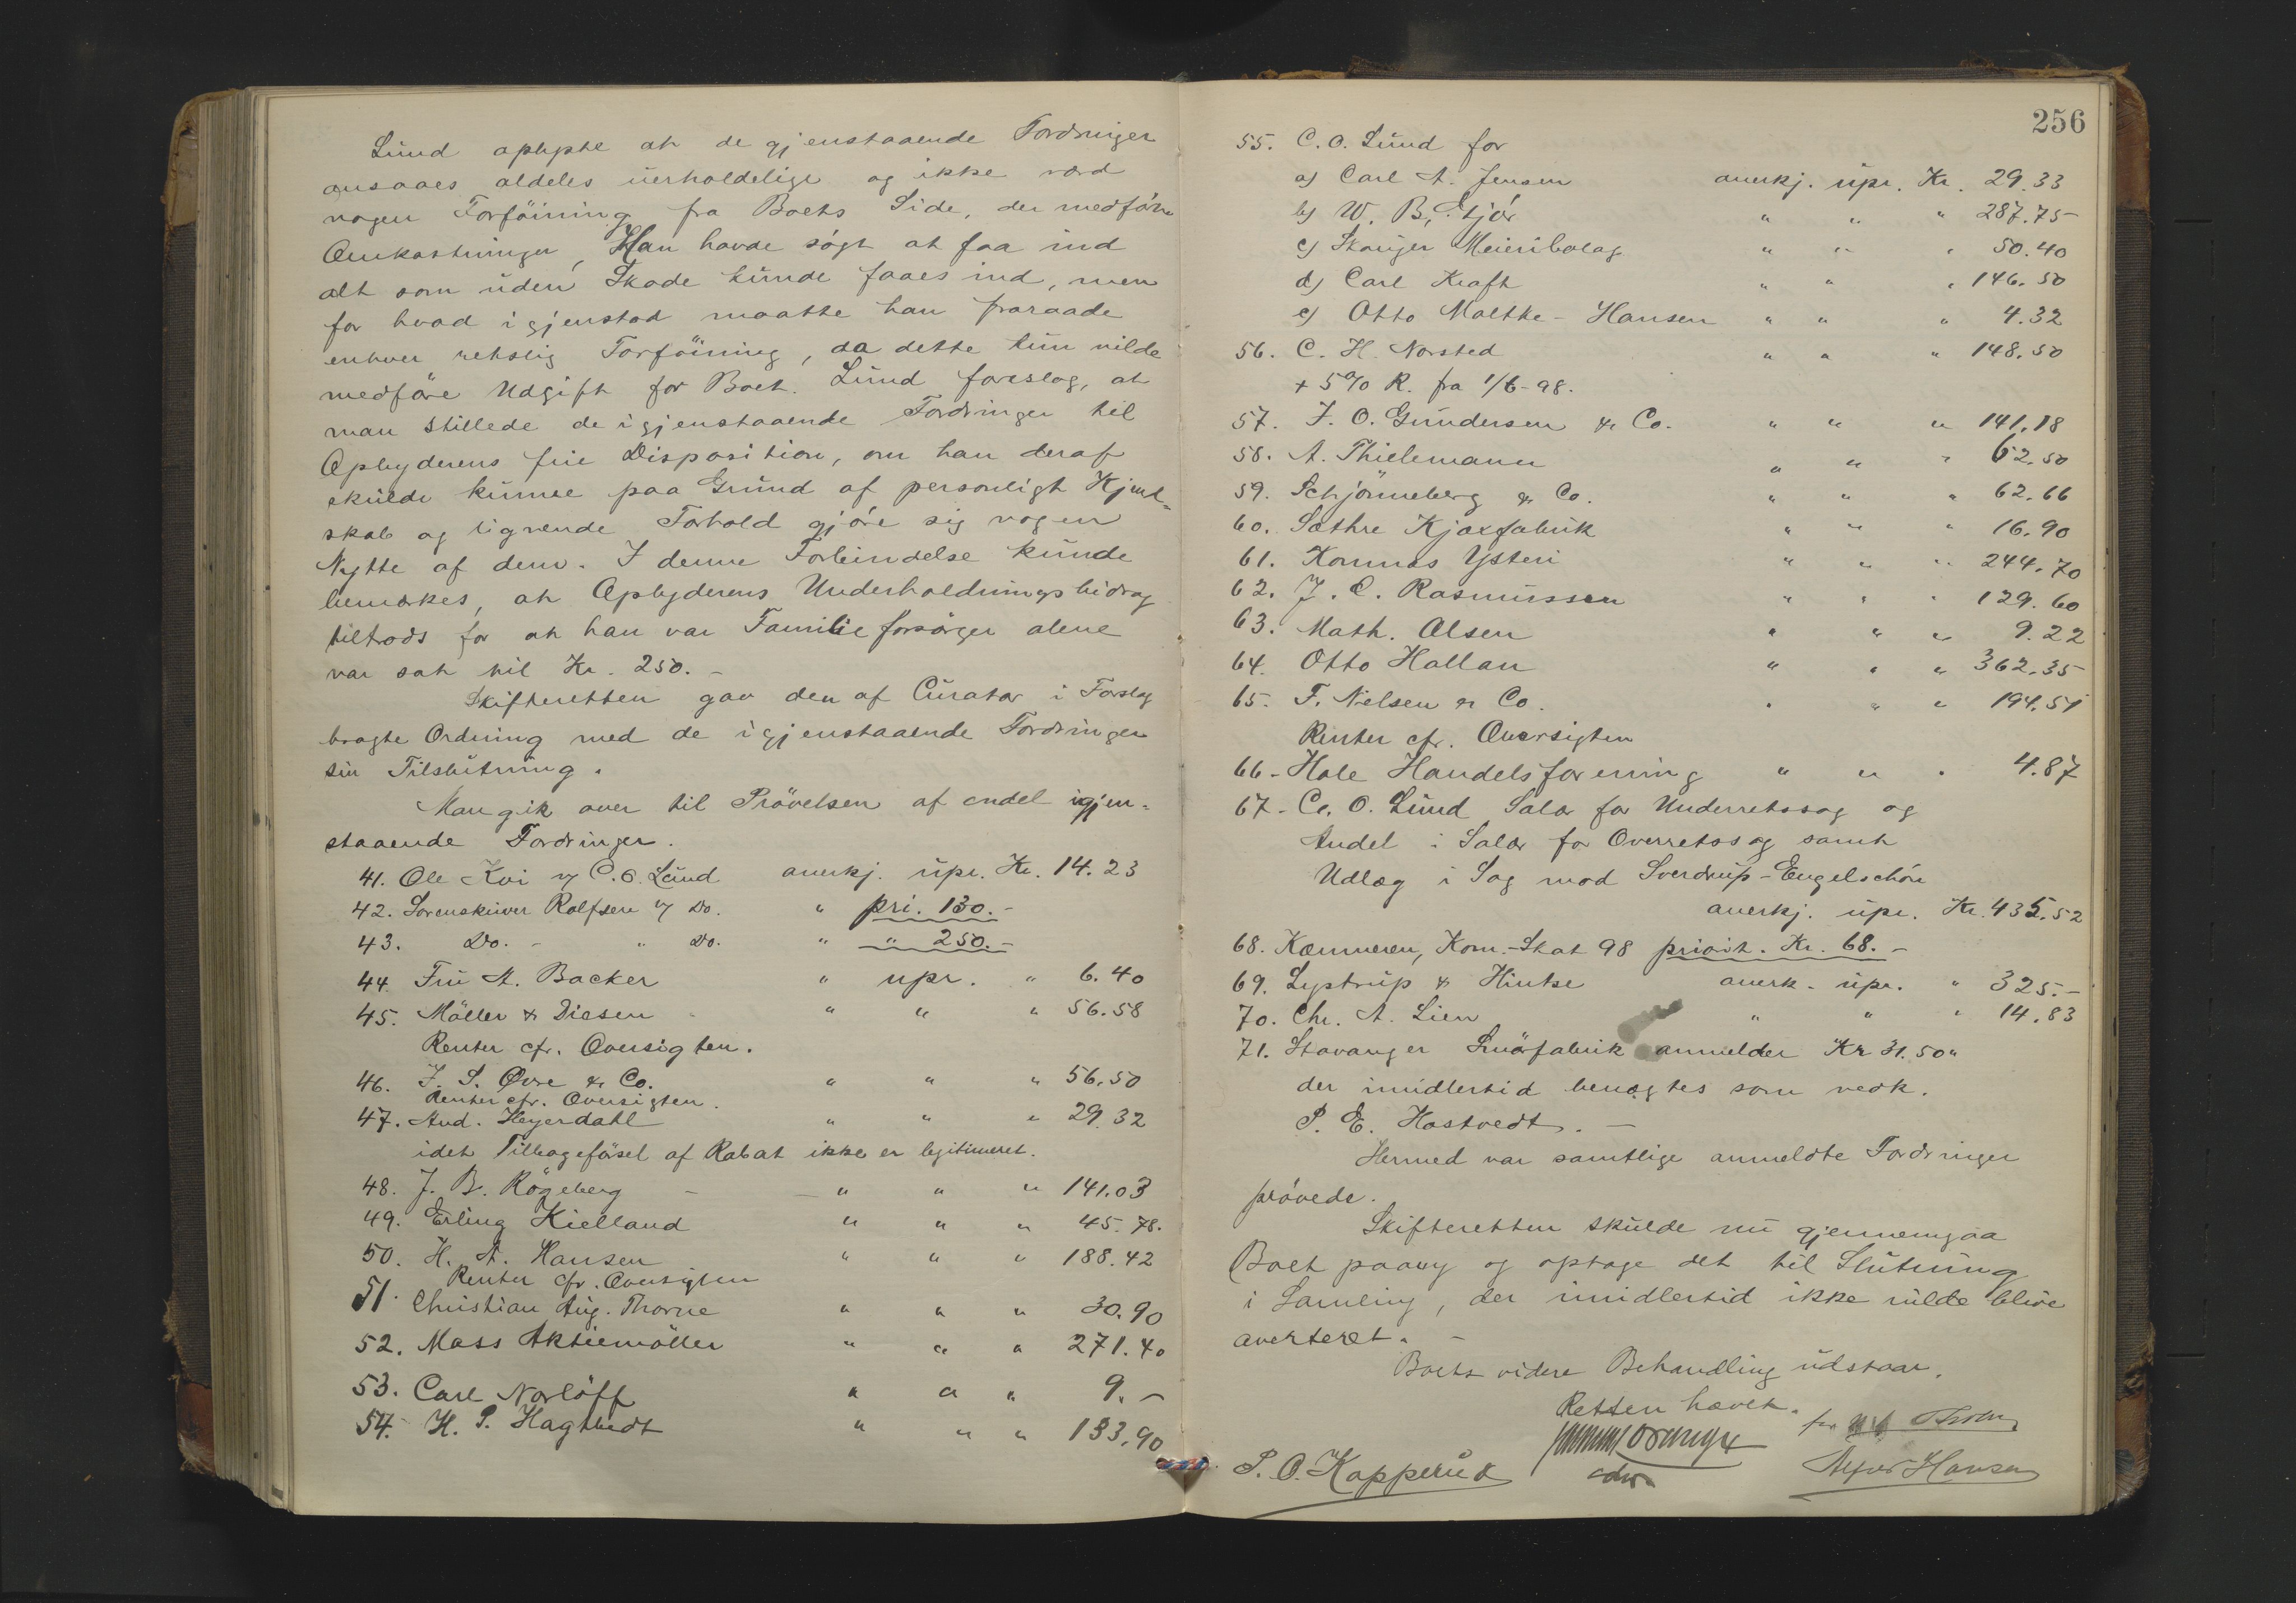 Lund oplyste at de gjenstaaende Fordringer
ansaaes aldeles uerholdelige og ikke værd
nogen Forföining fra Boets Side, der medförer
Omkostninger, Han havde sögt at faa ind
alt som uden Skade kunde faaes ind, men
for hvad igjenstod maatte han fraraade
enhver retslig Forföining, da dette kun vilde
medföre Udgift for Boet. Lund foreslog, at
man stillede de igjenstaaende Fordringer til
Opbyderens frie Disposition, om han deraf
skulde kunne paa Grund af personligt Kjend-
skab og lignende Forhold gjöre sig nogen
Nytte af dem. I denne Forbindelse kunde
bemærkes, at Opbyderens Underholdningsbidrag
tiltrods for at han var Familieforsörger alene
var sat til Kr. 250.-
Skifteretten gav den af Curator i Forslag
bragte Ordning med de igjenstaaende Fordringer
sin Tilslutning.
Man gik over til Prövelsen af endel igjen-
staaende Fordringer.
41. Ole Kvi v/ C. O. Lund anerkj. upr. Kr. 14.23
42. Sorenskriver Rolfsen v/ Do. " pri. 130.-
43. Do. - " Do. " " 250.-
44. Fru A. Backer " upr. " 6.40
45. Möller & Diesen " " " 56.58
Renter cfr. Oversigten.
46. J. S. Øvre & Co. " " " 56.50
Renter cfr. Oversigten.
47. And. Heyerdahl " " " 29.32
idet Tilbageförsel af Rabat ikke er legitimeret.
48. J. B. Rögeberg - " " " 141.03
49. Erling Kielland " " " 45.78.
50. H. A. Hansen " " " 188.42
Renter cfr. Oversigten
51. Christian Aug. Thorne " " " 30.90
52. Moss Aktiemöller " " " 271.40
53. Carl Norlöff " " " 9.-
54. H. P. Hagtvedt " " " 133.90
256
55. C. O. Lund for
a) Carl A. Jensen anerkj. upr. Kr. 29.33
b) W. B. Stjör " " " 287.75
c) Skauger Meieribolag " " " 50.40
d) Carl Kraft " " " 146.50
e) Otto Moltke-Hansen " " " 4.32
56. C. H. Norsted " " " 148.50
+ 5% R. fra 1/6-98.
57. J. O. Gundersen & Co. " " " 141.18
58. A. Thielemann " " " 62.50
59. Schjönneberg & Co. " " " 62.66
60. Sæthre Kjæxfabrik " " " 16.90
61. Kornmos Ysteri " " " 244.70
62. J. C. Rasmussen " " " 129.60
63. Math. Olsen " " " 9.22
64. Otto Hallan " " " 362.35
65. F. Nielsen & Co. " " " 194.51
Renter cfr. Oversigten
66. Hole Handelsforening " " " 4.87
67. C. O. Lund Salær for Underretssag og
Andel i Salær for Overretssag samt
Udlæg i Sag mod Sverdrup-Engelschön
anerkj. upr. Kr. 435.52
68. Kæmneren, Kom.-Skat 98 priorit. Kr. 68.-
69. Lystrup & Hintze anerk. upr. " 325.-
70. Chr. A. Lien " " " 14.83
71. Stavanger Smörfabrik anmelder Kr 31.50"
der imidlertid benægtes som vedk.
P. E. Hostvedt. -
Hermed var samtlige anmeldte Fordringer
prövede.
Skifteretten skulde nu gjennemgaa
Boet paany og optage det til Slutning
i Samling, der imidlertid ikke vilde blive
averteret. -
Boets videre Behandling udstaar.
Retten hævet.
P. O. Kapperud
for
Hansen